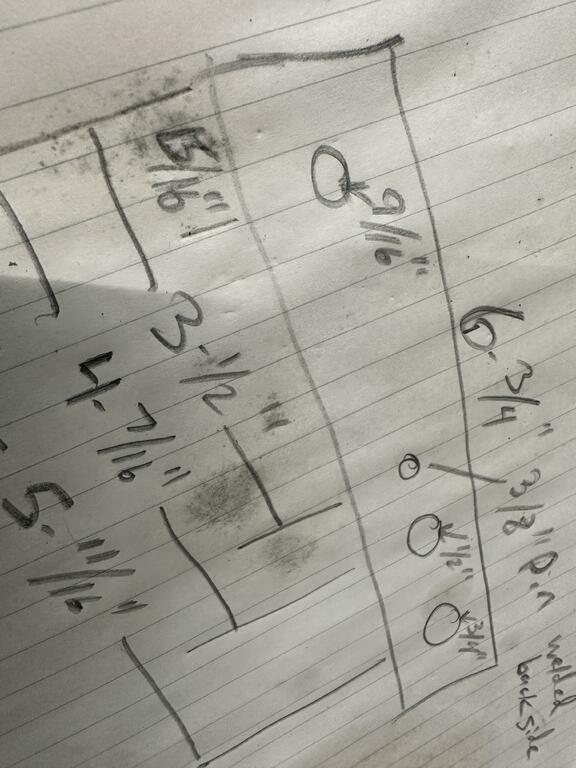 6-3/4"
3/8" pin welded
back side
9/16"
1/2"
3/4"
5/16"
3-1/2"
4-7/16"
5-11/16"